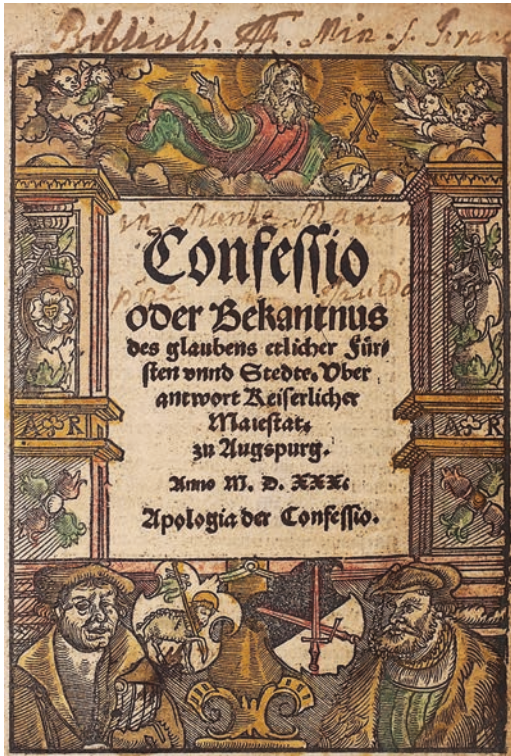 Biblioth. FF. Min. S. Franc
in Munte Marien
Confessio
oder Bekantnus
des glaubens etlicher Für⸗
sten vnnd Stedte, Vber
antwort Keiserlicher
Maiestat,
zu Augspurg.
Anno M. D. XXX.
Apologia der Confessio.
A R
A R